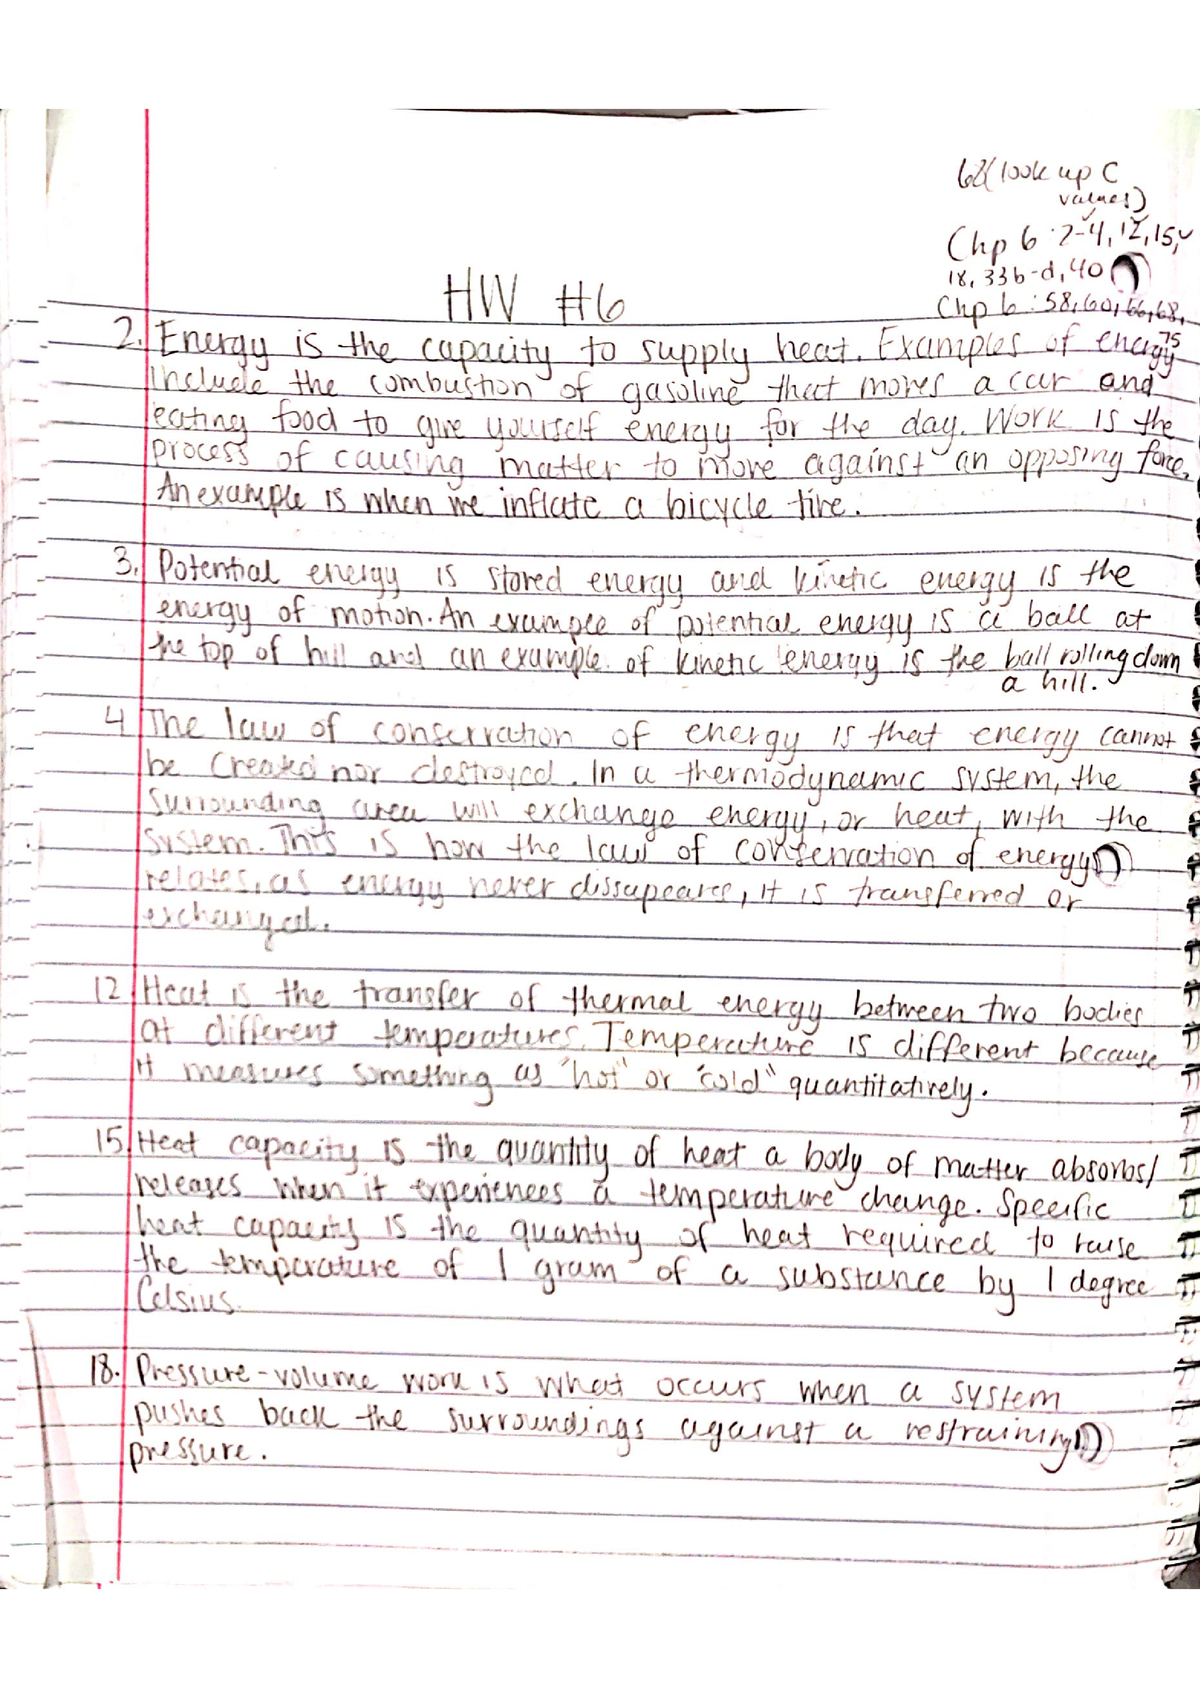 62(look up C
values)
Chp 6 · 2-4, 12, 15,
18, 33b-d, 40
Chp 6 : 58, 60, 66, 68,
75
HW #6
2. Energy is the capacity to supply heat. Examples of energy
include the combustion of gasoline that moves a car and
eating food to give yourself energy for the day. Work is the
process of causing matter to move against an opposing force.
An example is when we inflate a bicycle tire.
3. Potential energy is stored energy and kinetic energy is the
energy of motion. An example of potential energy is a ball at
the top of hill and an example of kinetic energy is the ball rolling down
a hill.
4 The law of conservation of energy is that energy cannot
be created nor destroyed. In a thermodynamic system, the
surrounding area will exchange energy, or heat, with the
system. This is how the law of conservation of energy
relates, as energy never dissapeares, it is transferred or
exchanged.
12 Heat is the transfer of thermal energy between two bodies
at different temperatures. Temperature is different because
it measures something as "hot" or "cold" quantitatively.
15. Heat capacity is the quantity of heat a body of matter absorbs/
releases when it experiences a temperature change. Specific
heat capacity is the quantity of heat required to raise
the temperature of 1 gram of a substance by 1 degree
Celsius.
18. Pressure-volume work is what occurs when a system
pushes back the surroundings against a restraining
pressure.